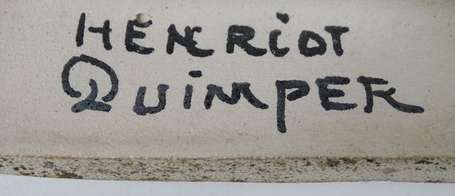 HENRIOT
QUIMPER